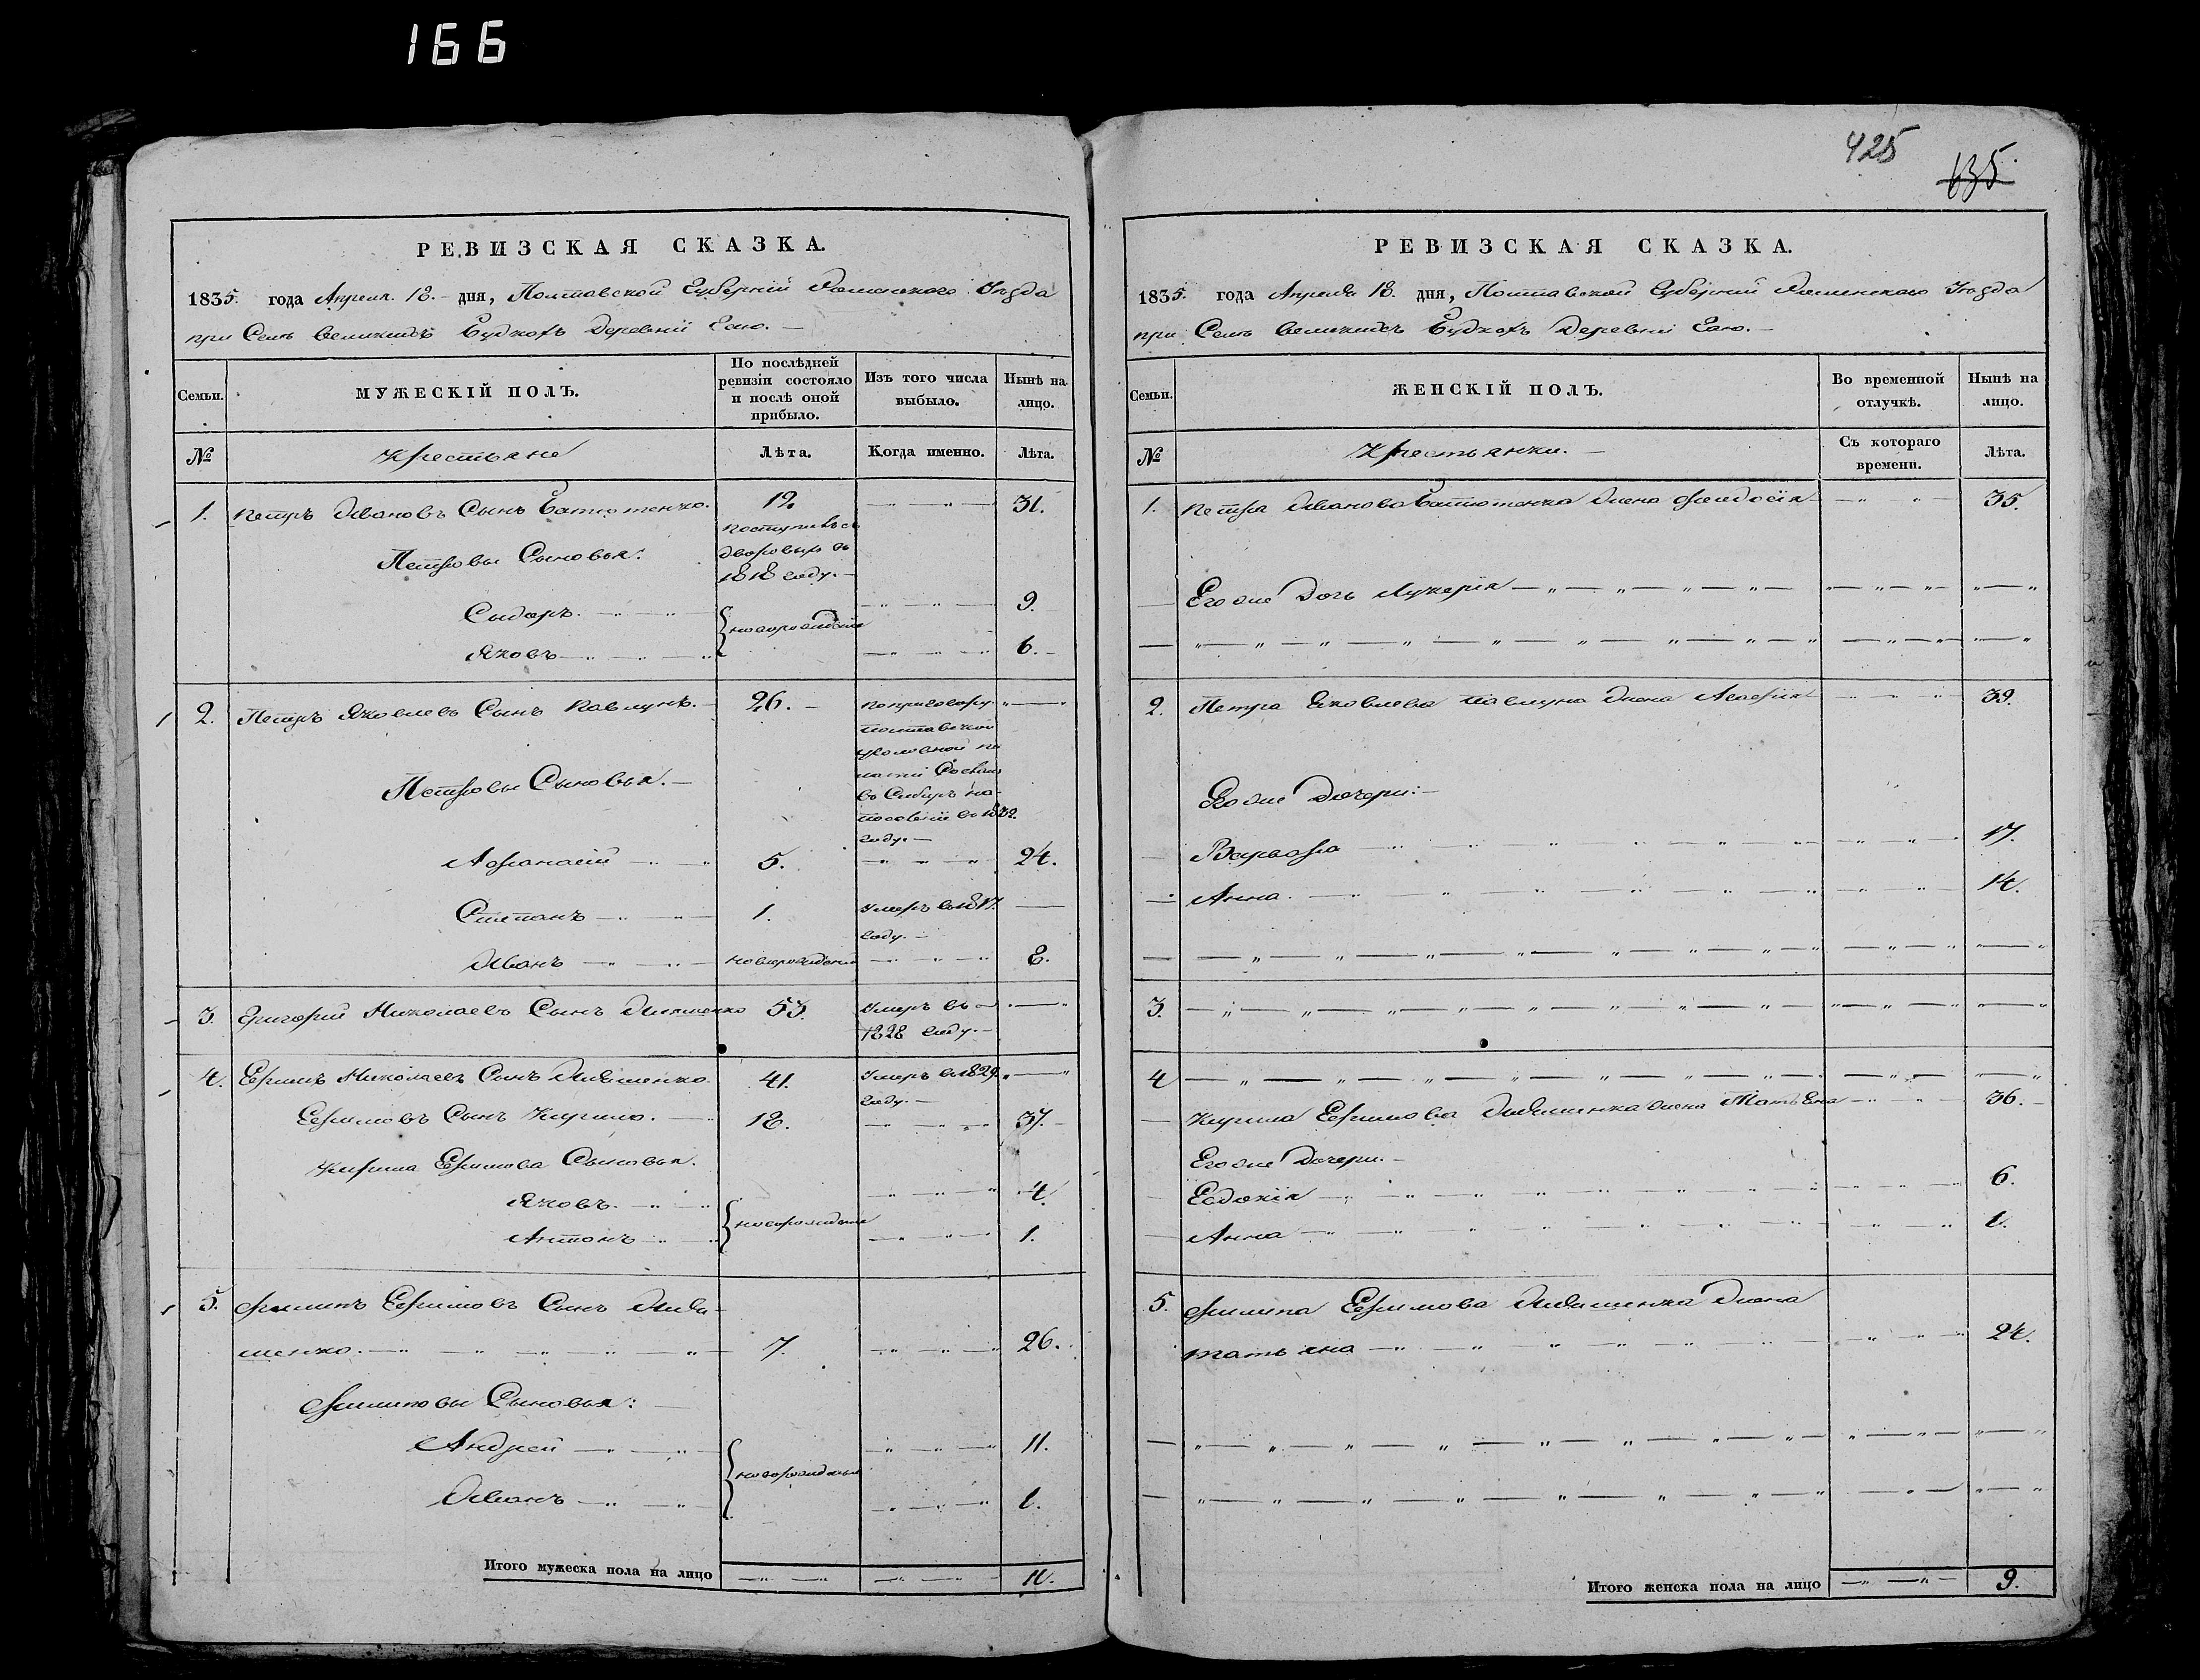 166
425
635.
РЕВИЗСКАЯ СКАЗКА.
1835. года Апреля. 18. дня, Полтавской Губерній Роменского Уезда
при Селе Великихъ Будкахъ Деревни
Семьи.
МУЖЕСКІЙ ПОЛЪ.
По послѣдней ревизіи состояло и послѣ оной прибыло.
Изъ того числа выбыло.
Нынѣ на лицо.
№
Крестьяне
Лѣта.
Когда именно.
Лѣта.
1. Петръ Ивановъ Сынъ 12. 31.
поступилъ съ
дворовыхъ въ
1818 году.
Петровы Сыновья:
Сидоръ. 9.
новорожденые
Яковъ 6.
2. Петръ Яковлевъ Сынъ Павлунъ. 26. по приговору
полтавской
уголовной па
латы Сосланъ
въ Сибирь на
поселеніе въ 1832
году.
Петровы Сыновья.
Афанасій 5. 24.
Степанъ 1. Умеръ въ 1817.
году.
Иванъ новорожденый 8.
3. Григорій Николаевъ Сынъ 53. Умеръ въ
1828 году.
4. Ефимъ Николаевъ Сынъ 41. Умеръ въ 1829.
году.
Ефимовъ Сынъ Кирило. 18. 37.
Кирила Ефимова Сыновья.
Яковъ. 4.
новорожденые
Антонъ 1.
5. Филипъ Ефимовъ Сынъ
шенко. 7. 26.
Филиповы Сыновья:
Андрей 11.
новорожденые
Иванъ 1.
Итого мужеска пола на лицо 11.
РЕВИЗСКАЯ СКАЗКА.
1835. года Апреля 18. дня, Полтавской Губерній Роменскаго Уезда
при Селе Великихъ Будкахъ Деревни
Семьи.
ЖЕНСКІЙ ПОЛЪ.
Во временной отлучкѣ.
Нынѣ на лицо.
№
Крестьянки.
Съ котораго времени.
Лѣта.
1. Петра Иванова жена Феодосія 35.
Его же дочь Лукерія
2. Петра Яковлева Павлуна жена Агафія 39.
Его же Дочери:
Варвара 17.
Анна. 14.
3.
4
Кирила Ефимова жена Татьяна 36.
Его же Дочери.
Евдокія 6.
Анна 1.
5. Филипа Ефимова жена
татьяна 24.
Итого женска пола на лицо 9.